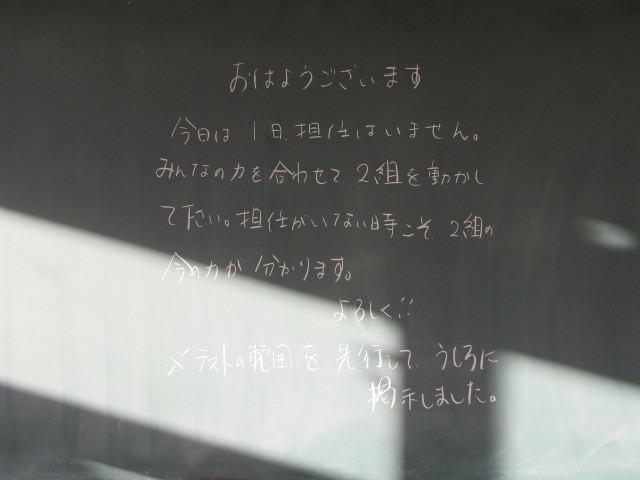 おはようございます
今日は1日、担任はいません。
みんなの力を合わせて、2組を動かし
て下さい。担任がいない時こそ、2組の
今の力が分かります。
よろしく!!
※テストの範囲を先行して、うしろに
掲示しました。